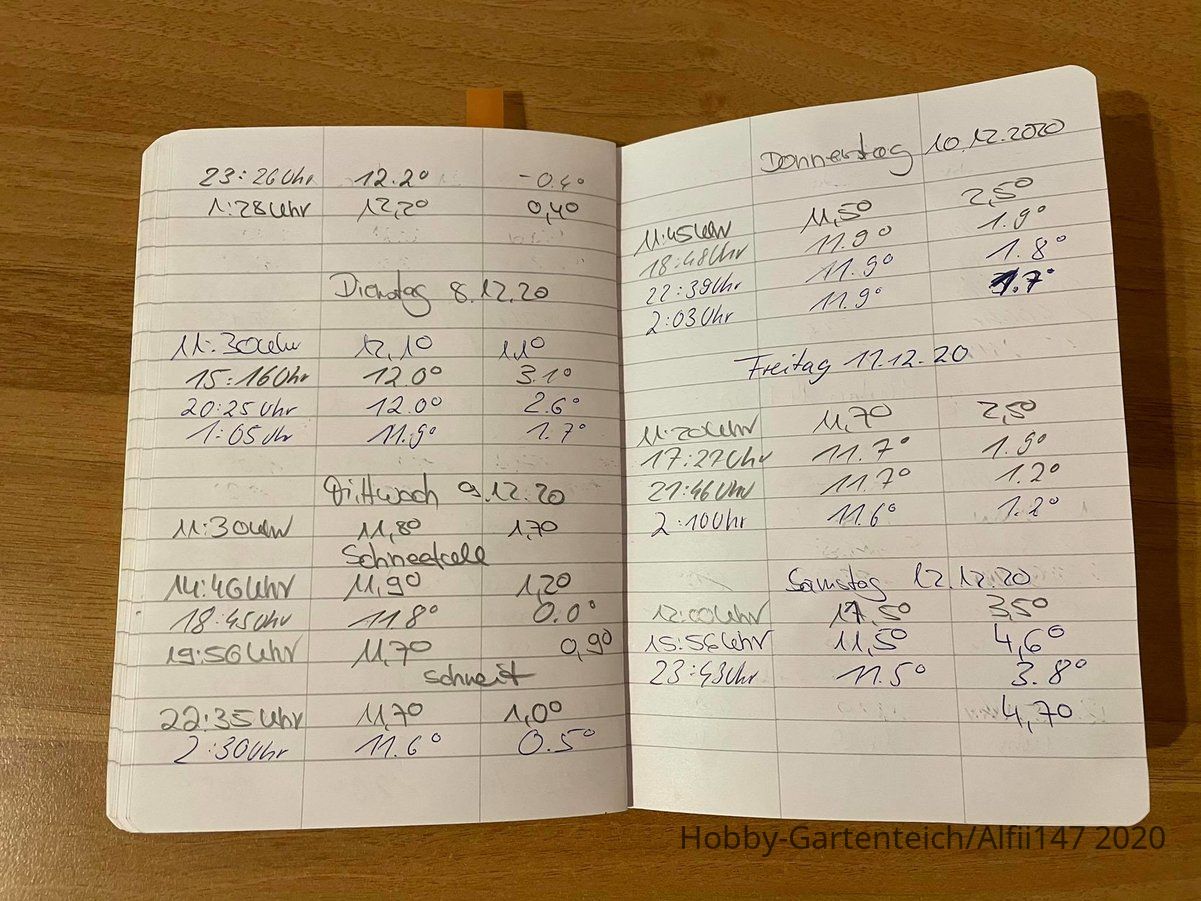 23:26Uhr 12.2° -0.4°
1:28Uhr 12,2° 0,4°
Dienstag 8.12.20
11:30Uhr 12,1° 1,1°
15:16Uhr 12.0° 3.1°
20:25Uhr 12.0° 2.6°
1:05Uhr 11.9° 1.7°
Mittwoch 9.12.20
11:30Uhr 11,8° 1,7°
Schneefall
14:46Uhr 11,9° 1,2°
18:45Uhr 11.8° 0.0°
19:56Uhr 11,7° 0,9°
schneit
22:35Uhr 11,7° 1,0°
2:30Uhr 11.6° 0.5°
Donnerstag 10.12.2020
11:45Uhr 11,5° 2,5°
18:48Uhr 11.9° 1.9°
22:39Uhr 11.9° 1.8°
2:03Uhr 11.9° 1.7°
Freitag 11.12.20
11:20Uhr 11,7° 2,5°
17:27Uhr 11.7° 1.9°
21:46Uhr 11.7° 1.2°
2:10Uhr 11.6° 1.2°
Samstag 12.12.20
12:00Uhr 11,5° 3,5°
15:56Uhr 11,5° 4,6°
23:43Uhr 11.5° 3.8°
4,7°
Hobby-Gartenteich/Alfii147 2020